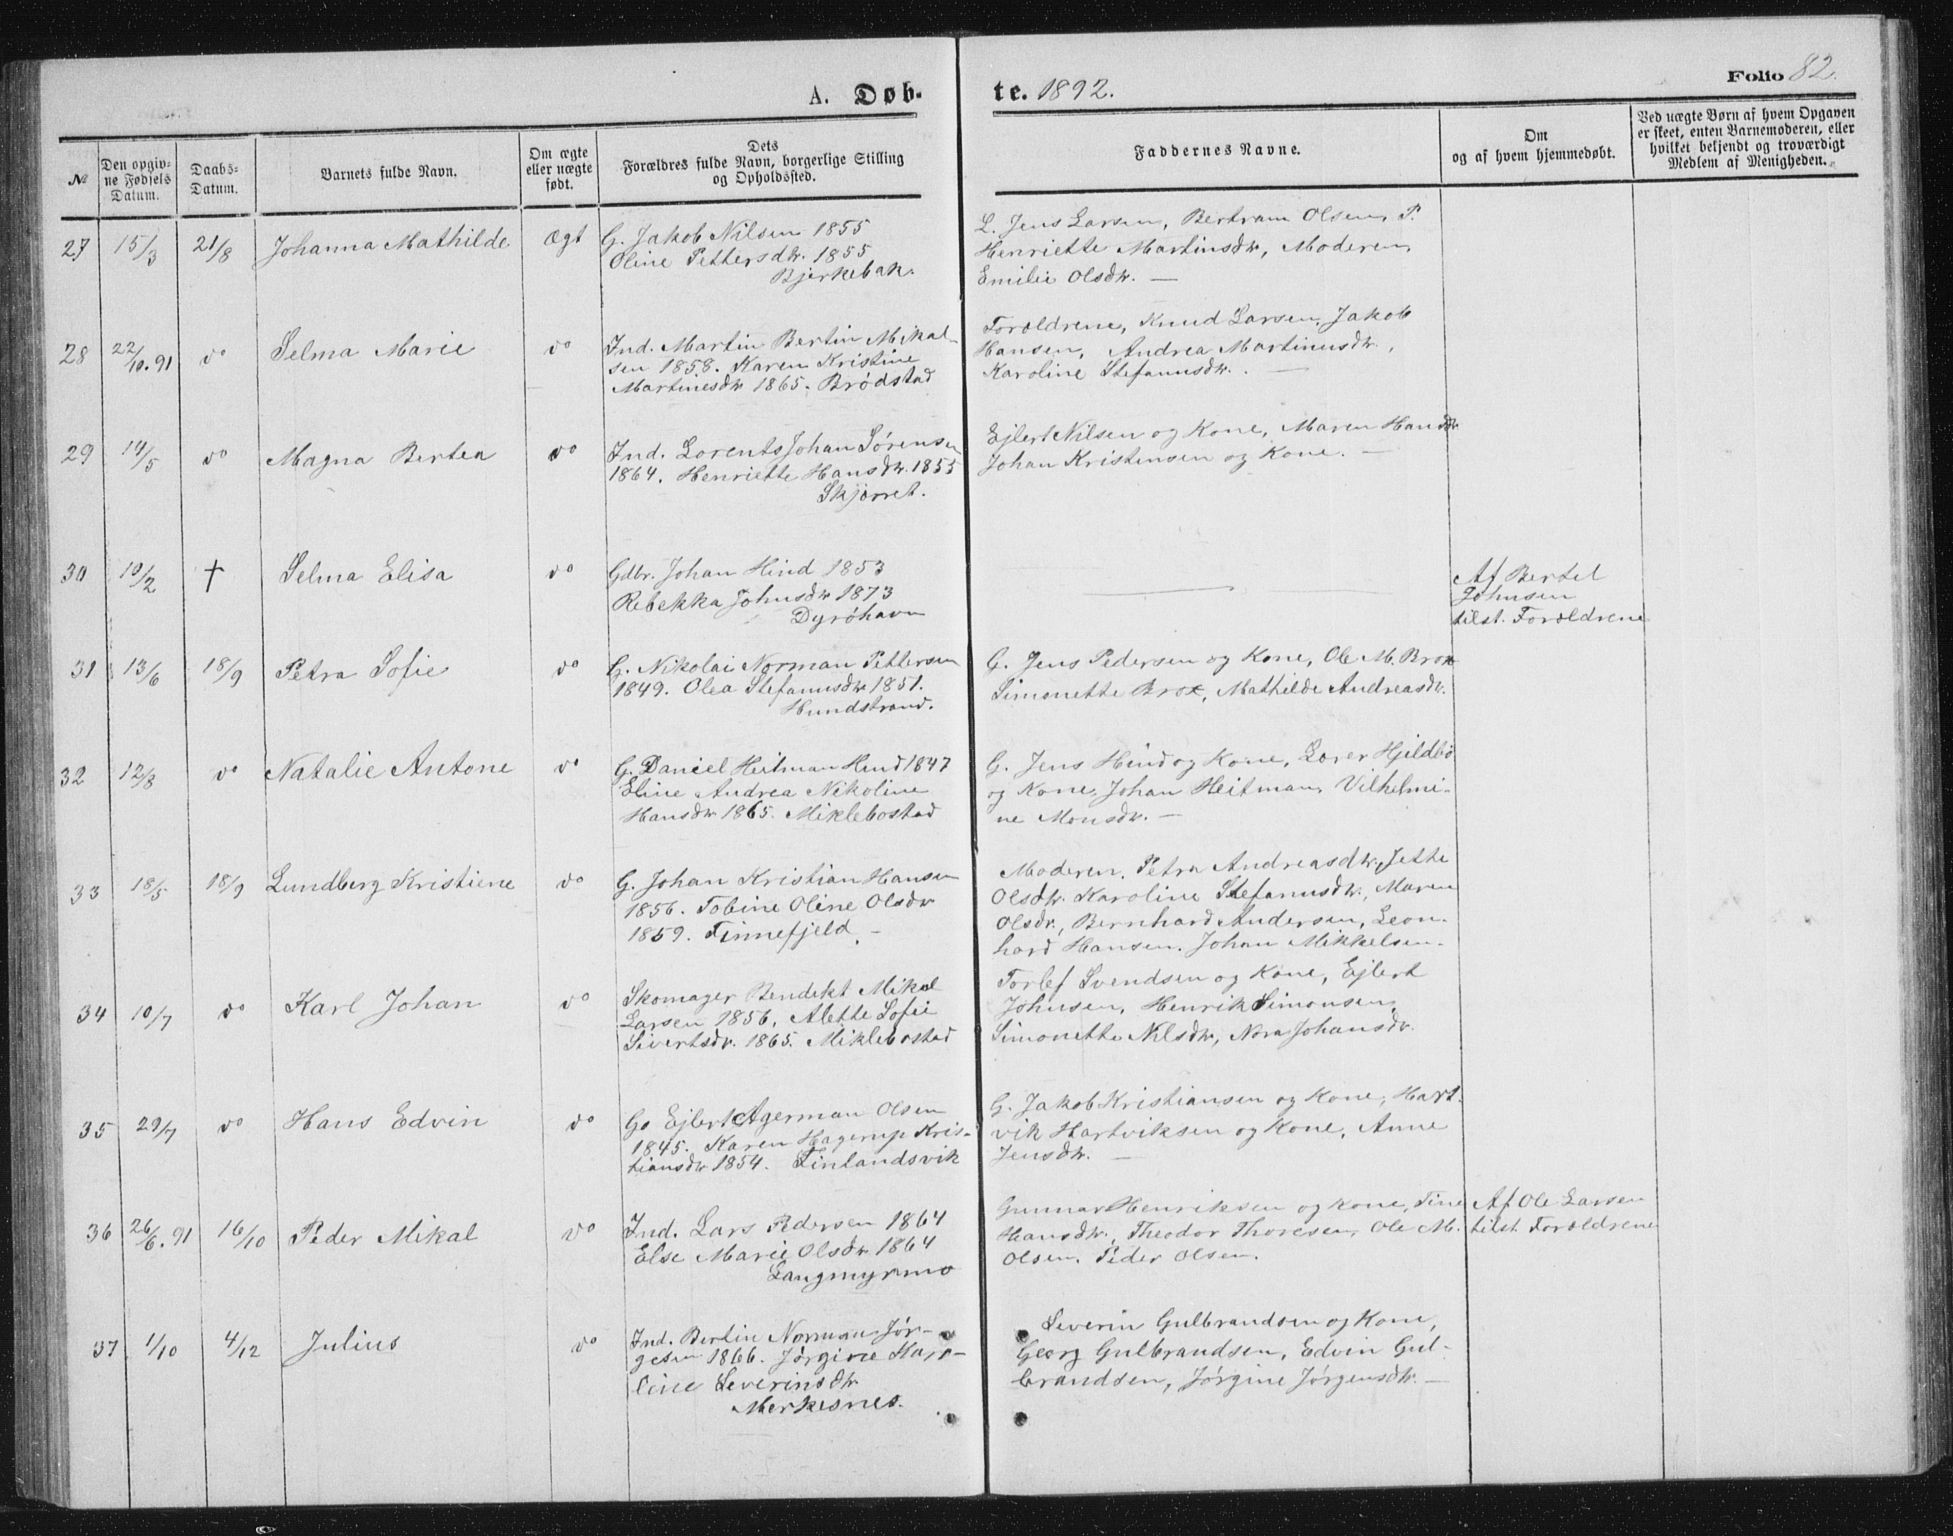 A. Døb-
te. 1892.
Folio 82.
№
Den opgiv-
ne Fødsels
Datum.
Daabs-
Datum.
Barnets fulde Navn.
Om ægte
eller uægte
født.
Dets
Forældres fulde Navn, borgerlige Stilling
og Opholdssted.
Faddernes Navne.
Om
og af hvem hjemmedøbt.
Ved uægte Børn af hvem Opgaven
er skeet, enten Barnemoderen, eller
hvilket bekjendt og troværdigt
Medlem af Menigheden.
27 15/3 21/8 Johanna Mathilde Ægt
G. Jakob Nilsen 1855
Oline Pettersdtr. 1855
Bjerkebak.
L. Jens Larsen, Bertram Olsen, P.
Henriette Martinsdtr, Moderen,
Emilie Olsdtr. —
28 22/10.91 do Selma Marie do
Ind. Martin Bertin Mikal-
sen 1858. Karen Kristine
Martinesdtr 1865. Brødstad
Forældrene, Knud Larsen, Jakob
Hansen, Andrea Martinusdtr.,
Karoline Stefanusdtr. —
29 14/5 do Magna Bertea do
Ind. Lorents Johan Sørensen
1864. Henriette Hansdtr. 1855
Skjørret.
Ejlert Nilsen og Kone, Maren Hansdtr
Johan Kristensen og Kone. —
30 10/2 † Selma Elisa do
Gdbr. Johan Hind 1853
Rebekka Johnsdtr 1873
Dyröhavn
—
Af Bertel
Johnsen
tilst. Forældrene
31 13/6 18/9 Petra Sofie do
G. Nikolai Norman Pettersen
1849. Olea Stefanusdtr 1851.
Hundstrand.
G. Jens Pedersen og Kone, Ole M. Brox
Simonette Brox, Mathilde Andreasdtr.
32 12/8 do Natalie Antone do
G. Daniel Heitman Hind 1847
Eline Andrea Nikoline
Hansdtr 1865. Miklebostad
G. Jens Hind og Kone, Lærer Hjeldbø
og Kone, Johan Heitman, Vilhelmi-
ne Monsdtr. —
33 18/5 18/9 Lundberg Kristiene do
G. Johan Kristian Hansen
1856. Tobine Oline Olsdtr
1859. Finnefjeld. —
Moderen, Petra Andreasdtr, Jette
Olsdtr. Karoline Stefanusdtr, Maren
Olsdtr., Bernhard Andersen, Leon-
hard Hansen, Johan Mikkelsen.
34 10/7 do Karl Johan do
Skomager Bendekt Mikal
Larsen 1856, Alette Sofie
Sivertsdtr. 1865. Miklebostad
Torlef Svendsen og Kone, Ejlert
Johnsen, Henrik Simonsen,
Simonette Nilsdtr, Nora Johansdtr.
35 29/7 do Hans Edvin do
Go Ejlert Agerman Olsen
1845. Karen Hagerup Kris-
tiansdtr 1854. Finlandsvik
G. Jakob Kristiansen og Kone, Hart-
vik Hartviksen og Kone, Anne
Jensdtr. —
36 26/6.91 16/10 Peder Mikal do
Ind. Lars Pedersen 1864
Else Marie Olsdtr 1864
Langmyrmo
Gunnar Henriksen og Kone, Tine
Hansdtr., Theodor Thoresen, Ole M.
Olsen, Peder Olsen.
Af Ole Larsen
tilst. Forældrene
37 1/10 4/12 Julius do
Ind. Bertin Norman Jør-
gesen 1866. Jørgine Hag-
line Severinsdtr
Merkesnes.
Severin Gulbrandsen og Kone,
Georg Gulbrandsen, Edvin Gul-
brandsen, Jørgine Jørgensdtr. —